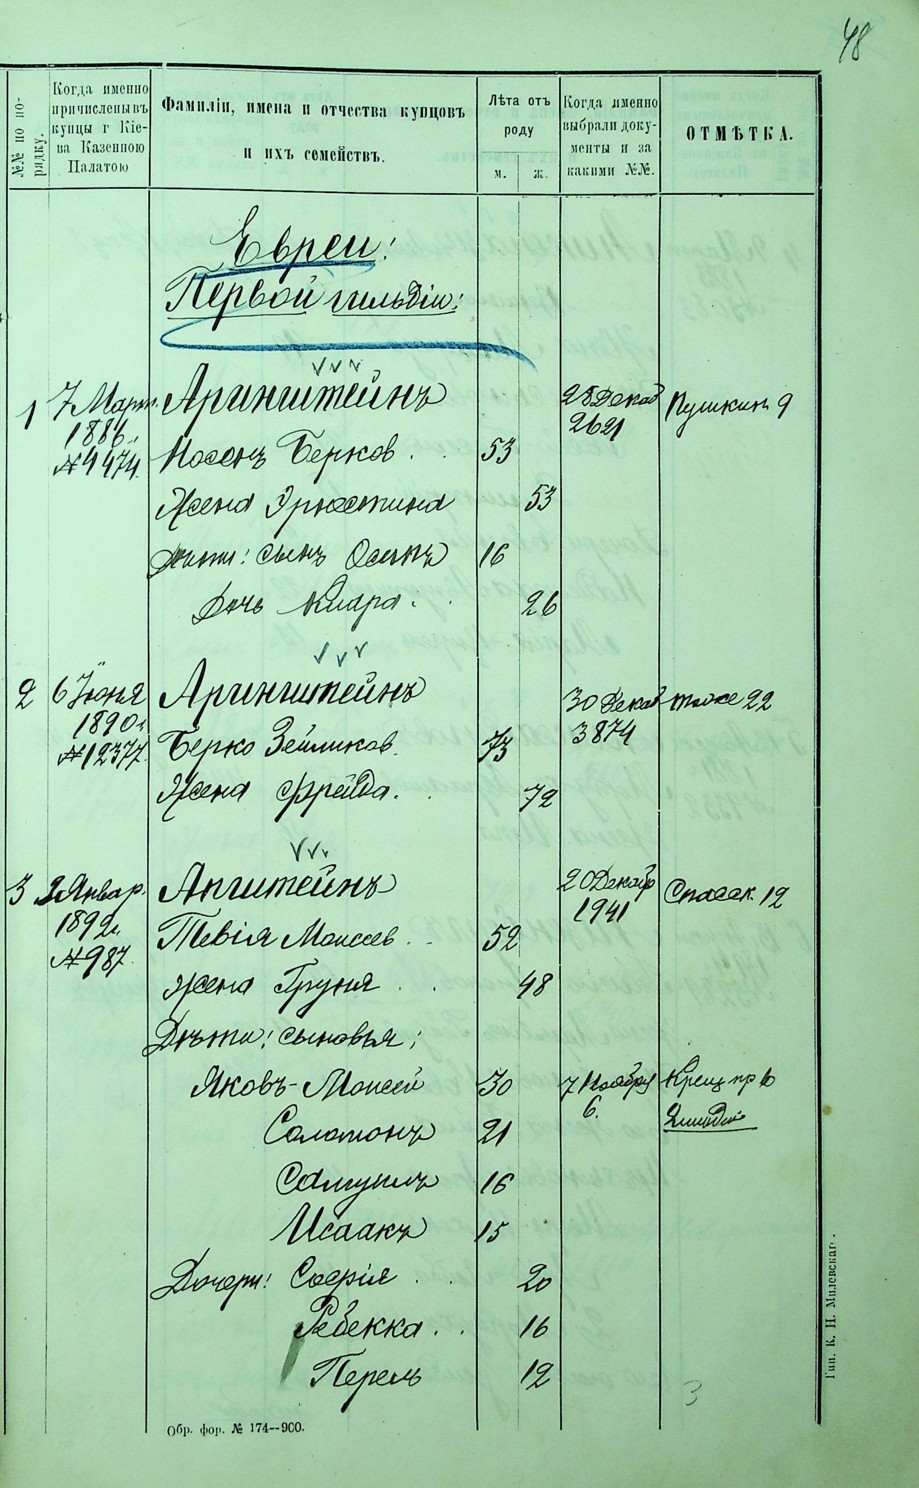 48
№№ по по-
рядку.
Когда именно
причислены въ
купцы г Кіе-
ва Казенною
Палатою
Фамиліи, имена и отчества купцовъ
и ихъ семействъ.
Лѣта отъ
роду
м. ж.
Когда именно
выбрали доку-
менты и за
какими №№.
ОТМѢТКА.
Евреи:
Первой гильдіи:
1 7 Март. Арингштейнъ 28 Декаб Пушкин. 9
188 2621
№ 4474 Носонъ Берков. 53
Жена Эрнестина 53
Дѣти: сынъ Осипъ 16
Дочь Клара. 26
2 6 Іюня Арингштейнъ 30 Декаб тоже 22
1890 г. 3874
№ 12377 Берко Зейликов. 73
Жена Фрейда. 72
3 2 Январ. Ангштейнъ 20 Декабр Спасск. 12
1892 г. 1941
№ 987 Тевія Моисеев. 52
Жена Груня 48
Дѣти: сыновья:
Яковъ-Моисей 30 7 Ноября Крещ
6.
Соломонъ 21
Самуилъ 16
Исаакъ 15
Дочери: Софія 20
Ребекка 16
Перель 12
3
Обр. фор. № 174--900.
Тип. К. Н. Милевскаг.